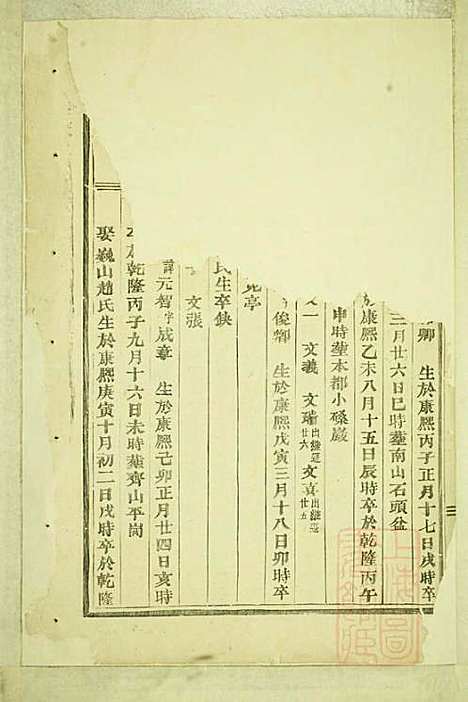 卿 生於康熙丙子正月十七日戌時卒
三月廿六日巳時塟南山石頭盆
於康熙乙未八月十五日辰時卒於乾隆丙午
申時塟本都小磉嚴
文義 文瑞出繼廷廿六 文哀出繼廷廿五
俊卿 生於康熙戊寅三月十八日卯時卒
亭
氏生卒缺
文張
諱元智字成章 生於康熙己卯正月廿四日亥時
乾隆丙子九月十六日未時塟齊山平岡
娶巍山趙氏生於康熙庚寅十月初二日戌時卒於乾隆